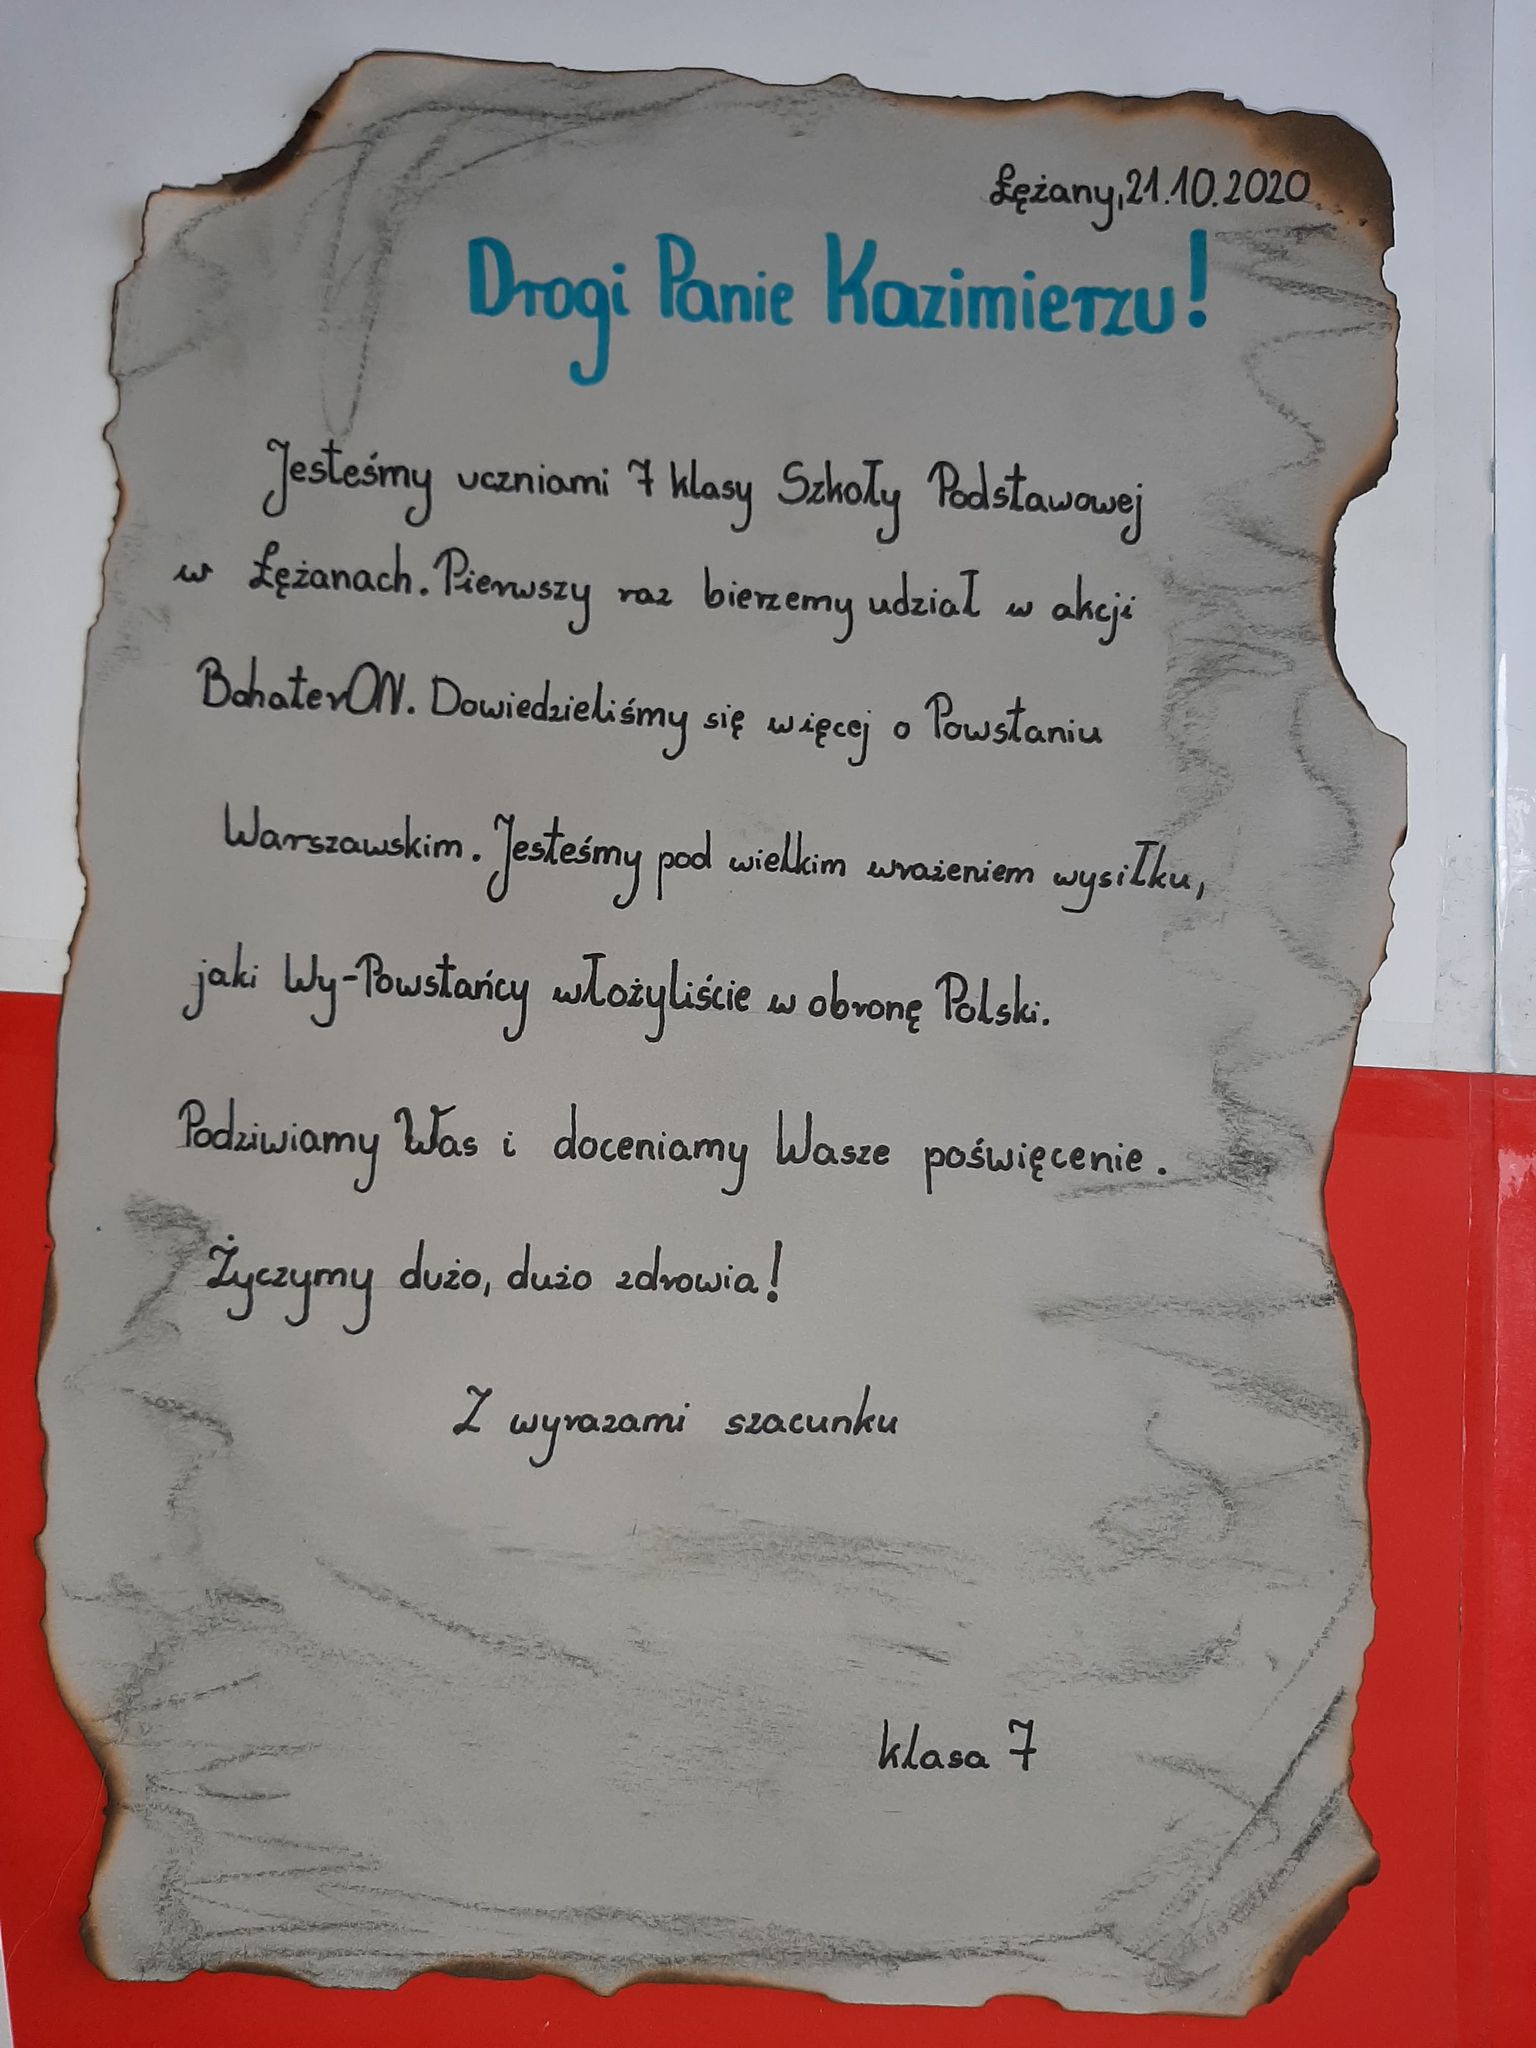 Łężany, 21.10.2020
Drogi Panie Kazimierzu!
Jesteśmy uczniami 7 klasy Szkoły Podstawowej
w Łężanach. Pierwszy raz bierzemy udział w akcji
BohaterON. Dowiedzieliśmy się więcej o Powstaniu
Warszawskim. Jesteśmy pod wielkim wrażeniem wysiłku,
jaki Wy-Powstańcy włożyliście w obronę Polski.
Podziwiamy Was i doceniamy Wasze poświęcenie.
Życzymy dużo, dużo zdrowia!
Z wyrazami szacunku
klasa 7